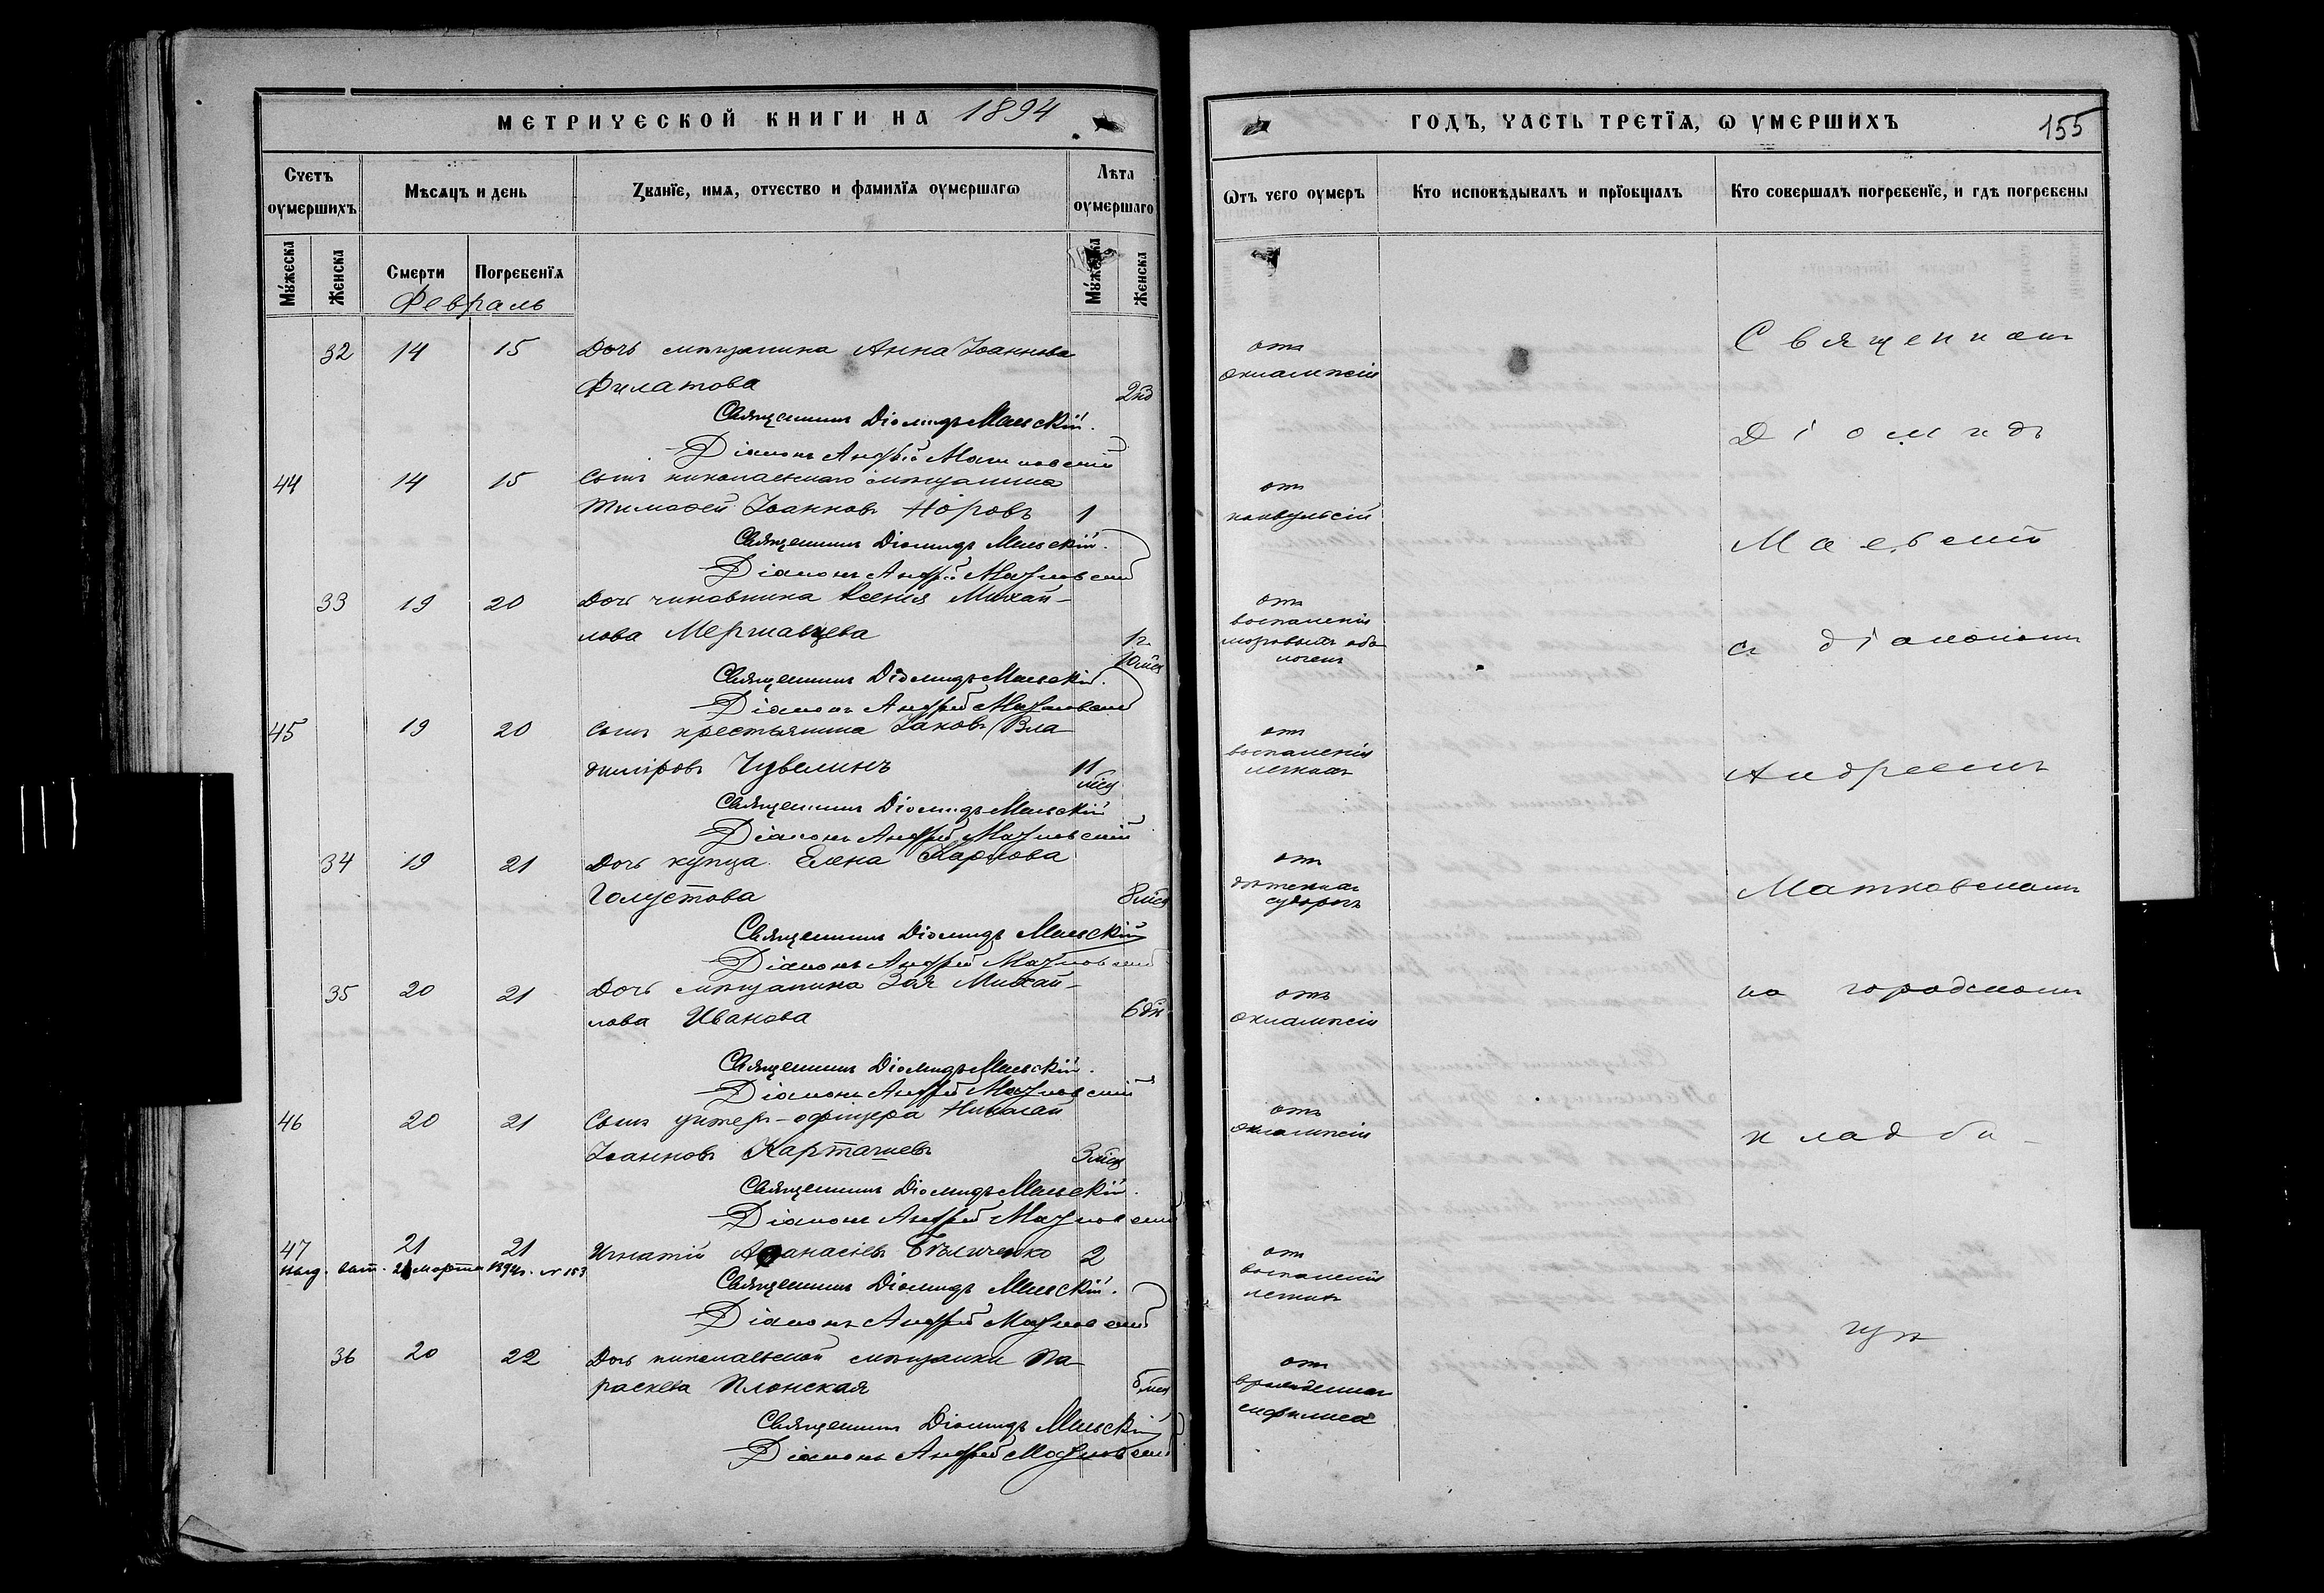 МЕТРИЧЕСКОЙ КНИГИ НА 1894
Счетъ оумершихъ
Мѣсяцъ и день
Званїе, имя, отчество и фамилїя оумершагѡ
Лѣта оумершаго
Мужеска
Женска
Смерти
Погребенїя
Мужеска
Женска
Февраль
32 14 15 Дочь мѣщанина Анна Іоаннова
Филатова 2 нд
Священникъ Діомидъ Маевскій.
Діаконъ Андрей Матковскій
44 14 15 Сынъ николаевскаго мѣщанина
Тимофей Іоанновъ Норовъ 1
Священникъ Діомидъ Маевскій.
Діаконъ Андрей Матковскій
33 19 20 Дочь чиновника Ксенія Михай-
лова Мержавцева 1 г.
10 мѣс
Священникъ Діомидъ Маевскій.
Діаконъ Андрей Матковскій
45 19 20 Сынъ крестьянина Іаковъ Вла-
диміровъ Чувелинъ 11
мѣс
Священникъ Діомидъ Маевскій
Діаконъ Андрей Матковскій
34 19 21 Дочь купца Елена Карпова
Голустова 8 мѣс
Священникъ Діомидъ Маевскій
Діаконъ Андрей Матковскій
35 20 21 Дочь мѣщанина Зоя Михай-
лова Иванова 6 дн
Священникъ Діомидъ Маевскій.
Діаконъ Андрей Матковскій
46 20 21 Сынъ унтеръ-офицера Николай
Іоанновъ Карташевъ 3 мѣс
Священникъ Діомидъ Маевскій.
Діаконъ Андрей Матковскій
47 21 21 Игнатій Афанасіевъ Бѣличенко 2
21 марта 1894 г. № 153
Священникъ Діомидъ Маевскій.
Діаконъ Андрей Матковскій
36 20 22 Дочь николаевской мѣщанки Па-
раскева Плонская 5 мѣс
Священникъ Діомидъ Маевскій
Діаконъ Андрей Матковскій
ГОДЪ, ЧАСТЬ ТРЕТЇЯ, Ѡ УМЕРШИХЪ 155
Ѿтъ чего оумеръ
Кто исповѣдывалъ и прїобщалъ
Кто совершалъ погребенїе, и гдѣ погребены
отъ
эклампсіи
отъ
конвульсій
отъ
воспаленія
мозговыхъ обо-
лочекъ
отъ
воспаленія
легкихъ
отъ
дѣтскихъ
судорогъ
отъ
эклампсіи
отъ
эклампсіи
отъ
воспаленія
легкихъ
отъ
врожденнаго
сифилиса
Священникъ
Діомидъ
Маевскій
съ діакономъ
Андреемъ
Матковскимъ
на городскомъ
кладби-
щѣ